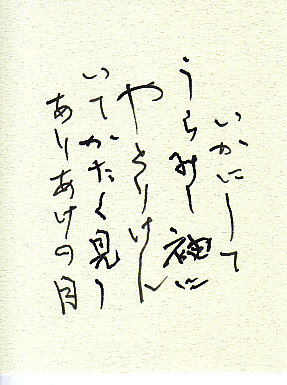 いかにして
うらみし袖に
やとりけん
いてかたく見し
ありあけの月